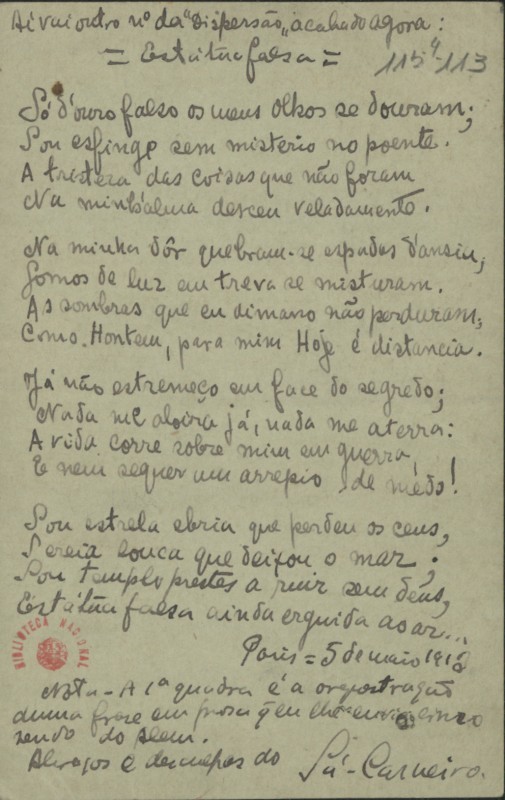 Ai vai outro nº da "Dispersão", acabado agora:
= Estátua falsa =
115⁴-113
Só d'ouro falso os meus olhos se douram;
Sou esfinge sem misterio no poente.
A tristeza das coisas que não foram
Na minh'alma desceu veladamente.
Na minha dôr quebram-se espadas d'ansia,
Gomos de luz em treva se misturam.
As sombras que eu dimano não perduram,
Como Hontem, para mim Hoje é distancia.
Já não estremeço em face do segredo;
Nada me aloira já, nada me aterra:
A vida corre sobre mim em guerra,
E nem sequer um arrepio de mêdo!
Sou estrela ebria que perdeu os ceus,
Sereia louca que deixou o mar;
Sou templo prestes a ruir sem deus,
Estátua falsa ainda erguida ao ar...
Paris = 5 de maio 1913
BIBLIOTECA NACIONAL
Nota - A 1ª quadra é a orquestração
duma frase em prosa q eu lhe enviei
sendo do
Abraços e desculpas do
Sá-Carneiro.